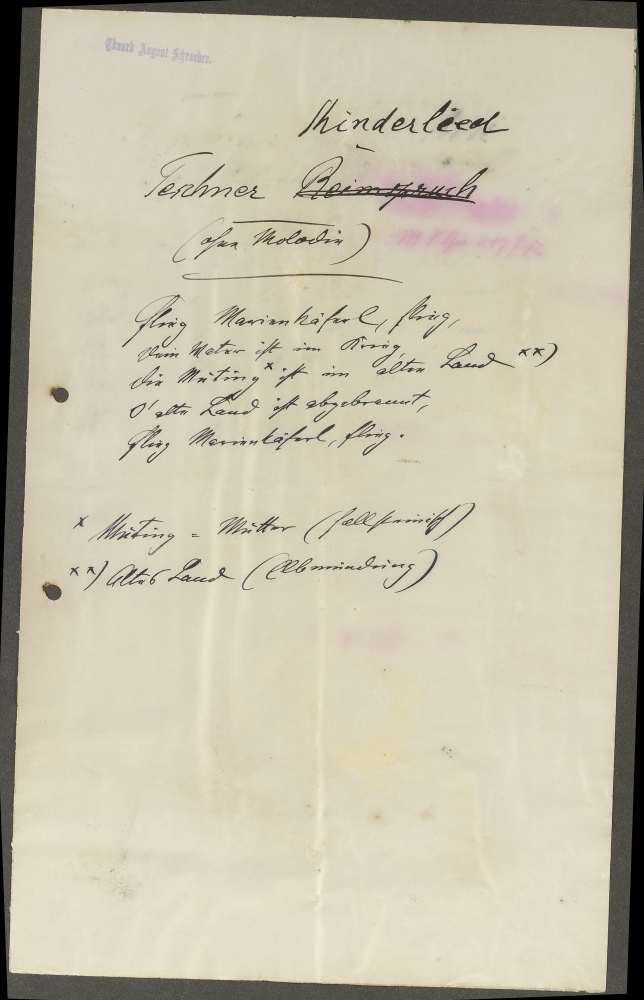 Eduard August Schroeder.
Kinderlied
Teschner Reimspruch
(ohne Melodie)
Flieg Marienkäferl, flieg,
Dein Vater ist im Krieg
die Muting x ist im alten Land xx)
S' alte Land ist abgebrannt,
flieg Marienkäferl, flieg.
x Muting = Mutter (hollsteinisch)
xx) Altes Land (Elbmündung)